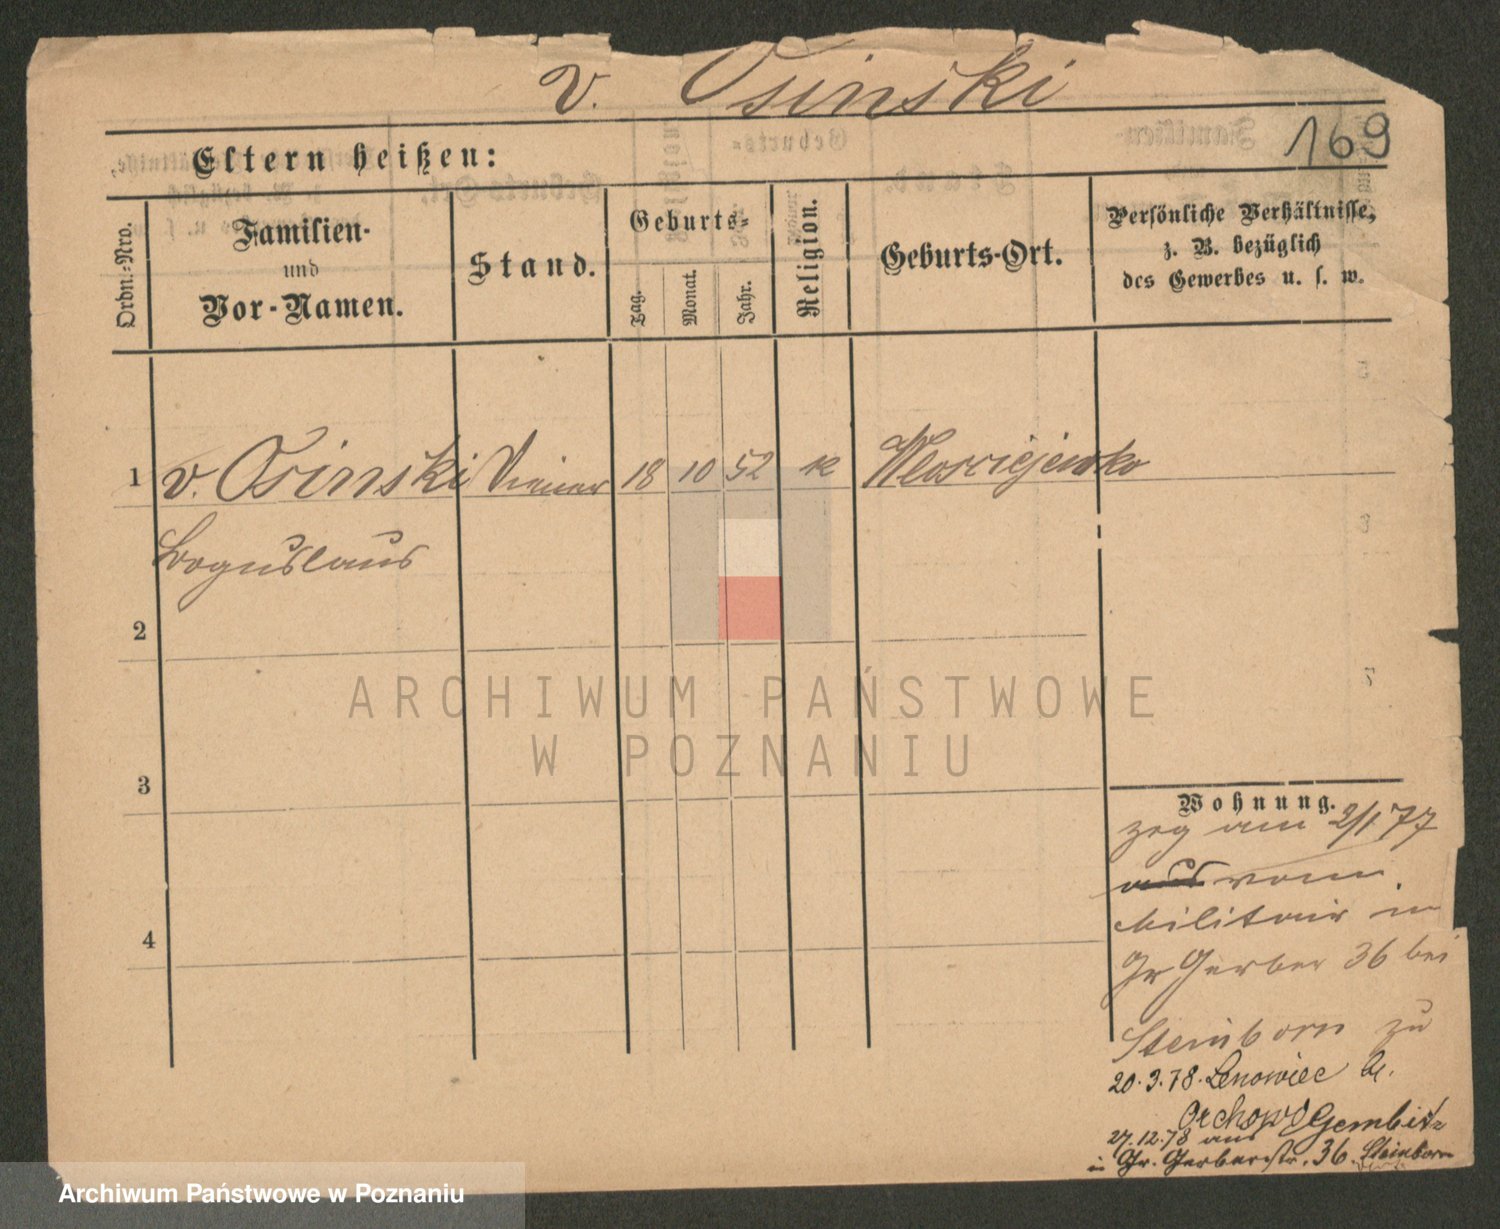 v. Osinski
169
Eltern heißen:
Ordn.-Nro.
Familien-
und
Vor-Namen.
Stand.
Geburts-
Tag.
Monat.
Jahr.
Religion.
Geburts-Ort.
Persönliche Verhältnisse,
z. B. bezüglich
des Gewerbes u. s. w.
1 v. Osinski Diener 18 10 52 k Wlosciejewko
Boguslaus
2
3
4
Wohnung.
zog am 2/1 77
aus vom
Militair in
Gr Gerber 36 bei
Steinborn zu
20.3.78. Lenowiec
Orchowo Gembitz
27.12.78 aus
in Gr. Gerberstr. 36. Steinborn
ARCHIWUM PAŃSTWOWE
W POZNANIU
Archiwum Państwowe w Poznaniu